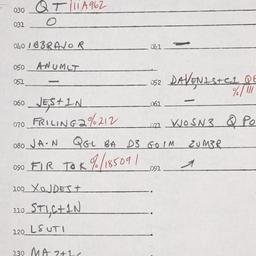 030 QT 11A962
031 0
040 1B3RAJO R 041 —
050 ANUMLT
051 — 052 DAVEN1S+C1 QE
%/111
060 JES+1N 061 —
070 FRILING2%212 071 VJOSN3 Q PO
080 JA·N QGL BA D3 GO1M ZUM3R
090 FIR TOK %/185091 091
100 XOJDES+
110 STIC+1N
120 LSUTI
130 MA 2+1